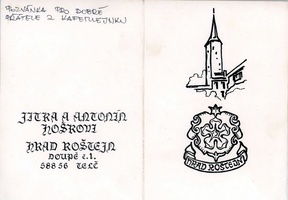 POZVÁNKA PRO DOBRÉ
PŘÁTELE Z KAFEMLEJNKU
JITKA A ANTONÍN
HOŠKOVI
HRAD ROŠTEJN
DOUPĚ č.1.
588 56 TELČ
HRAD ROŠTEJN